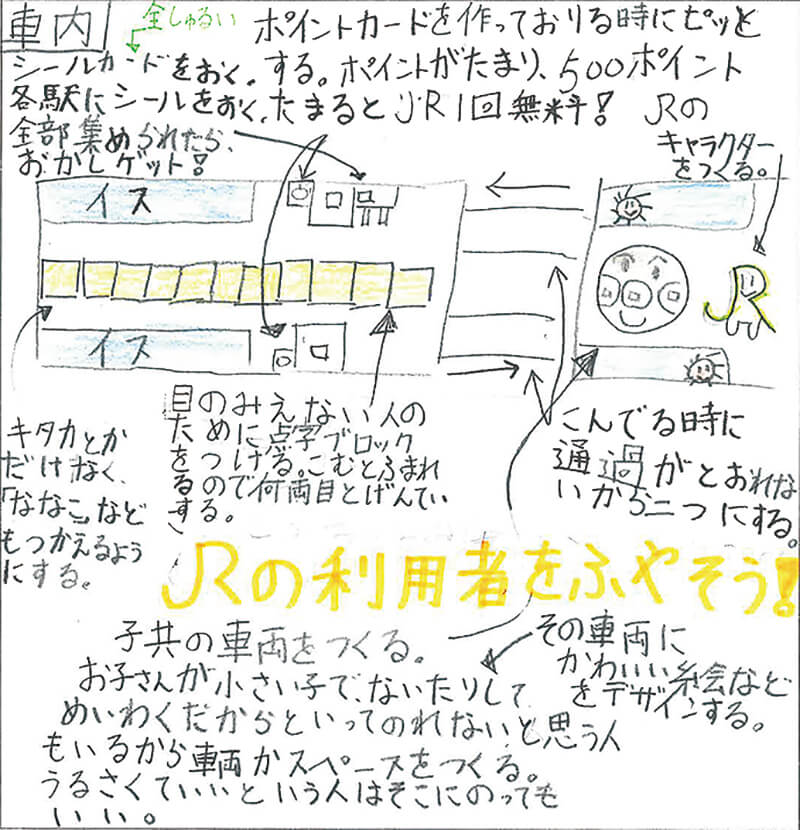 車内
全しゅるい
ポイントカードを作っておりる時にピッと
シールカードをおく。する。ポイントがたまり、500ポイント
各駅にシールをおく、たまるとJR1回無料! JRの
全部集められたら、
おかしゲット!
キャラクター
をつくる。
イス
JR
イス
キタカとか
だけなく、
「ななこ」など
もつかえるよう
にする。
目のみえない人の
ために点字ブロック
をつける。こむとふまれ
るので何両目とげんてい
する。
こんでる時に
通過がとおれな
いから二つにする。
JRの利用者をふやそう!
子共の車両をつくる。
お子さんが小さい子で、ないたりして
めいわくだからといってのれないと思う人
もいるから車両かスペースをつくる。
うるさくていいという人はそこにのっても
いい。
その車両に
かわいい絵など
をデザインする。